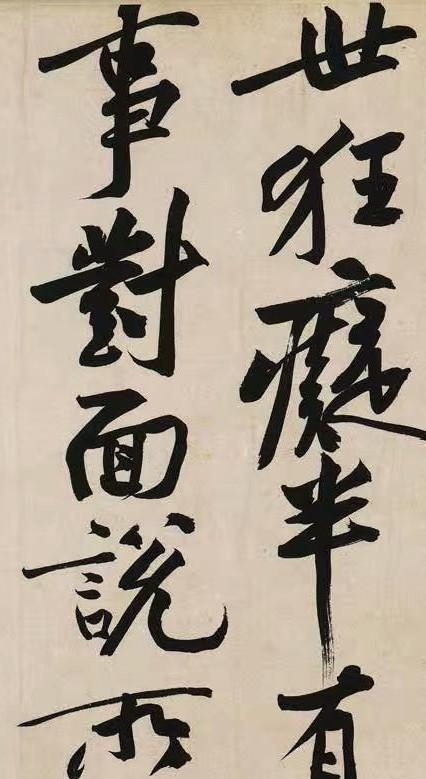 世狂癡半有
事對面說所